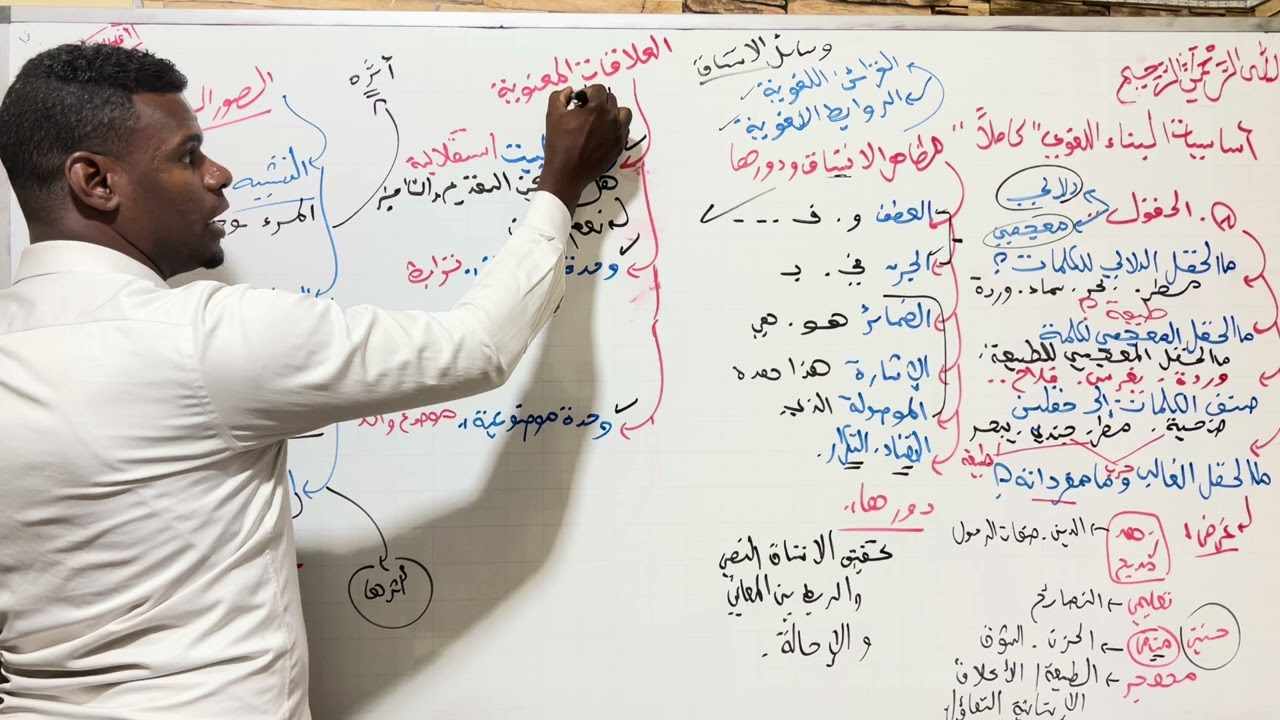 الله الرحمن الرحيم
أساسيات البناء اللغوي "كاملاً"
الحقول
دلالي
معجمي
ما الحقل الدلالي للكلمات؟
مطر. بحر. سماء. وردة
طبيعة
ما الحقل المعجمي لكلمة
ما الحقل المعجمي للطبيعة؟
وردة. يغرس. فلاح..
صنف الكلمات إلى حقلين
ضحية. مطر. جندي. يبحر
طبيعة حرب
ما الحقل الغالب وما مفرداته؟
غرض
مدح
مديح
الدين. صفات الرسول
تعليمي
النصائح
الحزن. الشوق
الطبيعة / الأخلاق
الإنسانية التفاؤل
وسائل الاتساق
القرائن اللغوية
الروابط اللغوية
مظاهر الاتساق ودورها
العطف و. ف ---
الجر: في. بـ
الضمائر هو. هي
الإشارة هذا
الموصولة الذي
التضاد. التكرار.
دورها:
تحقيق الاتساق النصي
والربط بين المعاني
والإحالة.
العلاقات المعنوية:
استقلالية
هل التقديم والتأخير
نعم
وحدة
وحدة موضوعية، موضوع واحد
الصور
أثره
التشبيه
المرء
أثرها